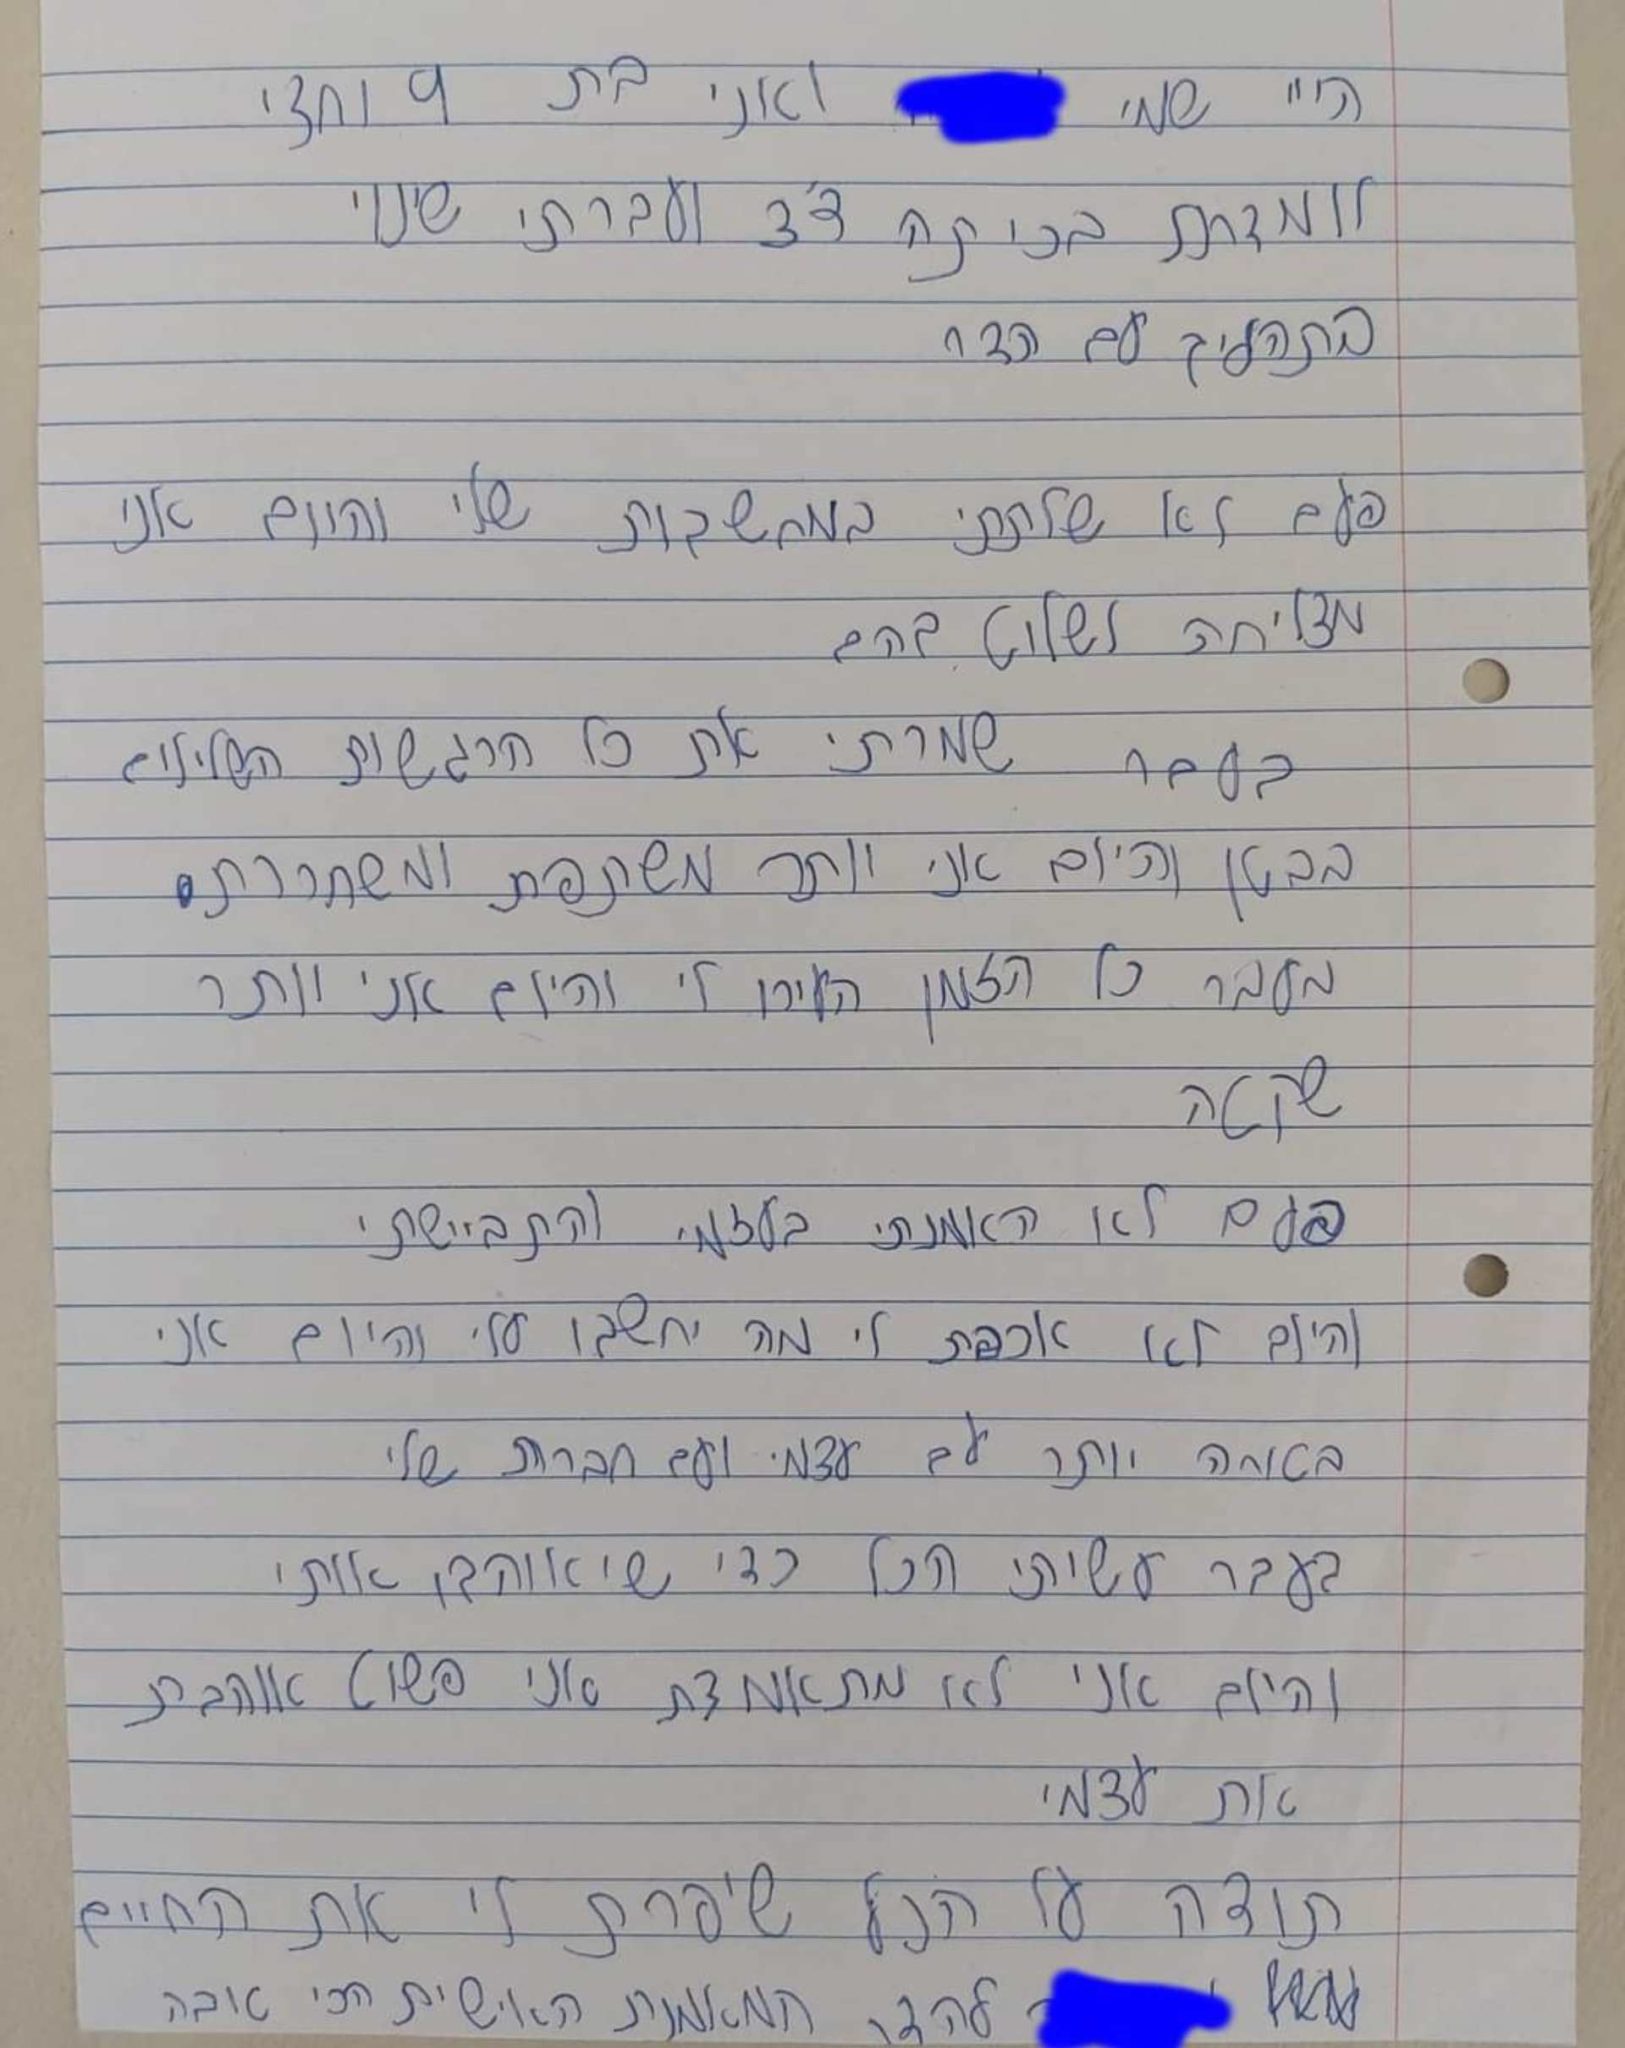 היי שמי ואני בת 9 וחצי
לומדת בכיתה ד'3 ועברתי שינוי
בתהליך עם הדר
פעם לא שלתתי במחשבות שלי והיום אני
מצליחה לשלוט בהם
בעבר שמרתי את כל הרגשות השלילים
בבטן והיום אני יותר משתפת ומשחררת.
בעבר כל הזמן העירו לי והיום אני יותר
שקטה
פעם לא האמנתי בעצמי והתביישתי
והיום לא אכפת לי מה יחשבו עלי והיום אני
בטוחה יותר עם עצמי ועם חברות שלי
בעבר עשיתי הכל כדי שיאוהבן אותי
והיום אני לא מתאמדת אני פשוט אוהבת
את עצמי
תודה על הכל שיפרת לי את החיים
להדר המאמנת האישית הכי טובה